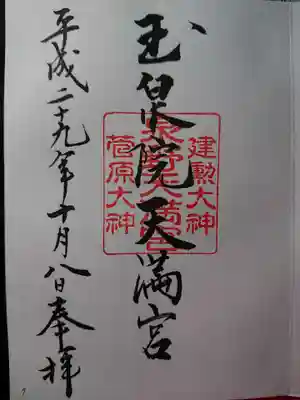 建勲大神
玉泉院天満宮
菅原大神
平成二十九年十月八日奉拝